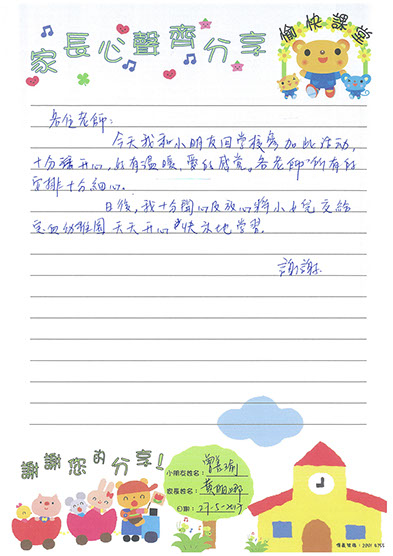 家長心聲齊分享
愉快課堂
各位老師:
今天我和小朋友回學校參加此活動,
十分開心,好有溫暖,愛的感覺。各老師所有的
安排十分細心。
日後,我十分開心及放心將小女兒交給
幼稚園天天開心快樂地學習。
謝謝
謝謝您的分享!
小朋友姓名:
家長姓名:
日期: 27-5-2017